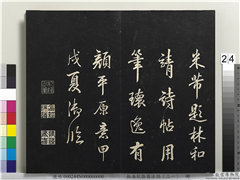 米芾題林和
靖詩帖用
筆瓌逸有
顏平原意甲
戌夏御臨
24